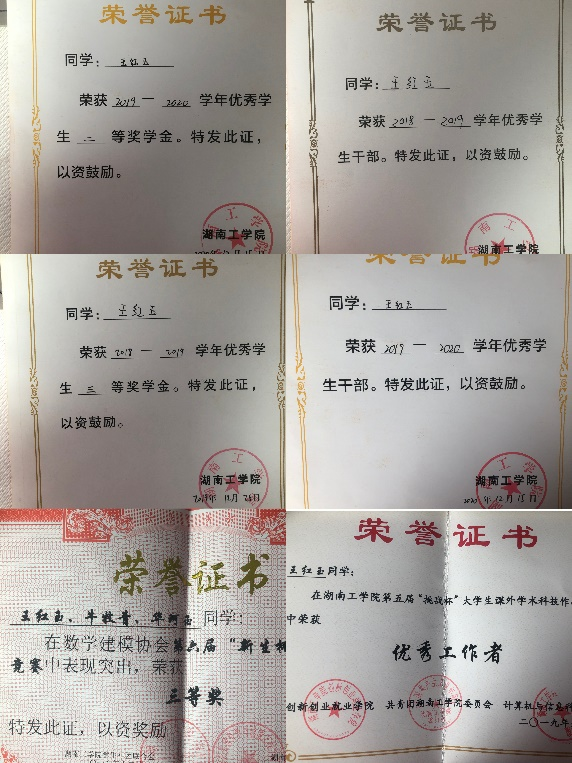 荣誉证书
同学：王红玉
荣获 2019 — 2020 学年优秀学
生 二 等奖学金。特发此证，
以资鼓励。
湖南工学院
荣誉证书
同学：王红玉
荣获 2018 — 2019 学年优秀学
生干部。特发此证，以资鼓励。
湖南工学院
荣誉证书
同学：王红玉
荣获 2018 — 2019 学年优秀学
生 三 等奖学金。特发此证，
以资鼓励。
湖南工学院
2019年 12月 26日
荣誉证书
同学：王红玉
荣获 2019 — 2020 学年优秀学
生干部。特发此证，以资鼓励。
湖南工学院
2020 年 12 月 15 日
荣誉证书
王红玉、牛牧青、 同学：
在数学建模协会第六届“新生杯
竞赛中表现突出，荣获
三等奖
特发此证，以资奖励
荣誉证书
王红玉同学：
在湖南工学院第五届“挑战杯”大学生课外学术科技作
中荣获
优秀工作者
创新创业就业学院 共青团湖南工学院委员会 计算机与信息科
二〇一九年